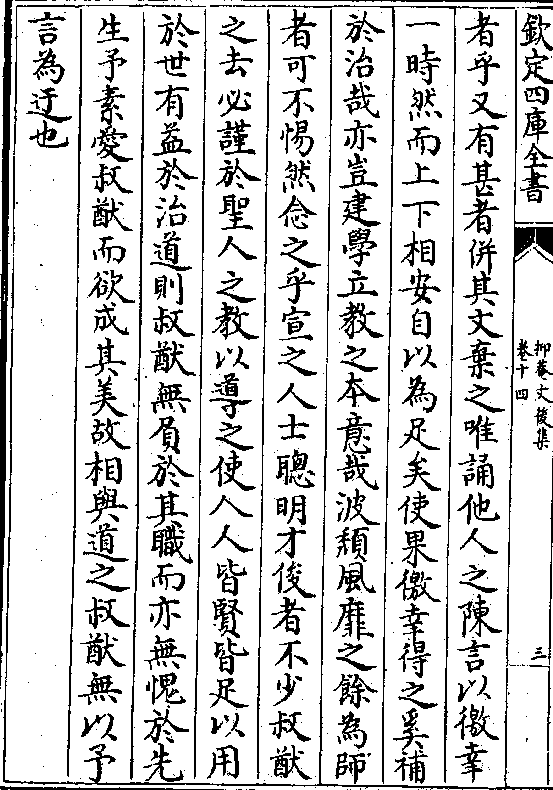 欽定四庫全書
抑菴文後集
卷十四
三
者乎又有甚者併其文棄之唯誦他人之陳言以徼幸
一時然而上下相安自以為足矣使果徼幸得之奚補
於治哉亦豈建學立教之本意哉波頹風靡之餘為師
者可不惕然念之乎宣之人士聰明才俊者不少叔猷
之去必謹於聖人之教以導之使人人皆賢皆足以用
於世有益於治道則叔猷無負於其職而亦無愧於先
生予素愛叔猷而欲成其美故相與道之叔猷無以予
言為迂也